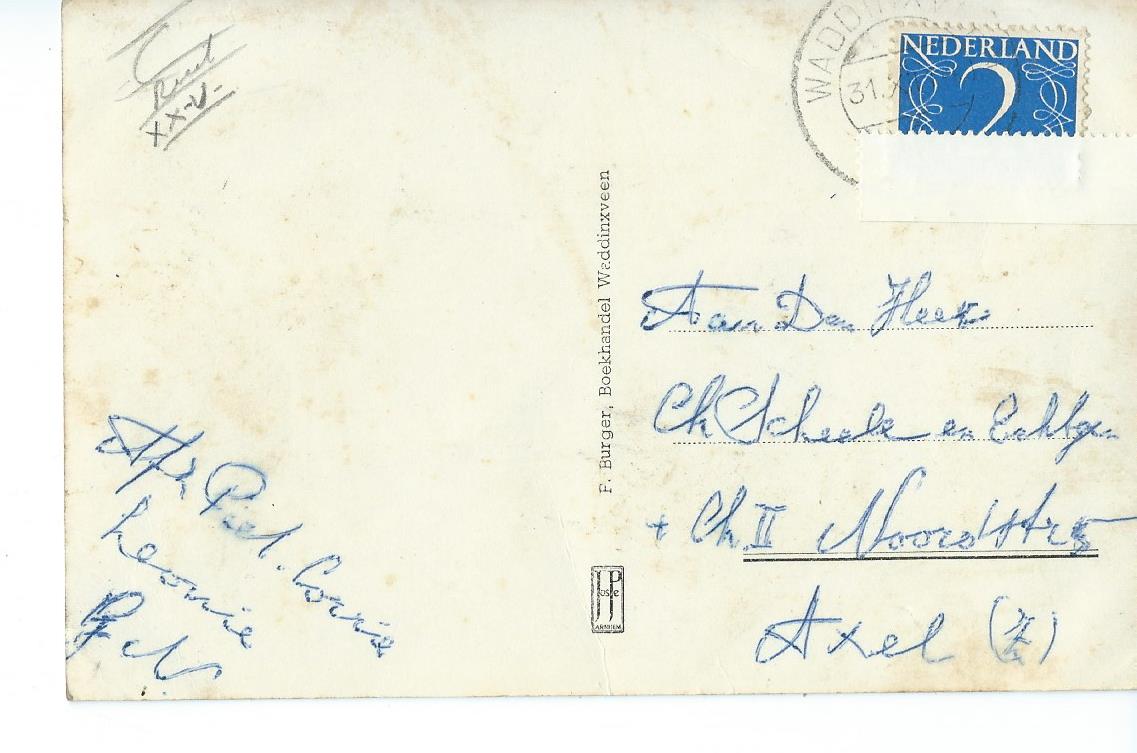 XX-V-
WADDINXVEEN
31.X
NEDERLAND
2
F. Burger, Boekhandel Waddinxveen
JosPe
ARNHEM
Aan Den Heer
Ch Scheele en Echtgen
+ Ch II Noordstr 5
Axel (Z)
Afz Piet. Corrie
Leonie